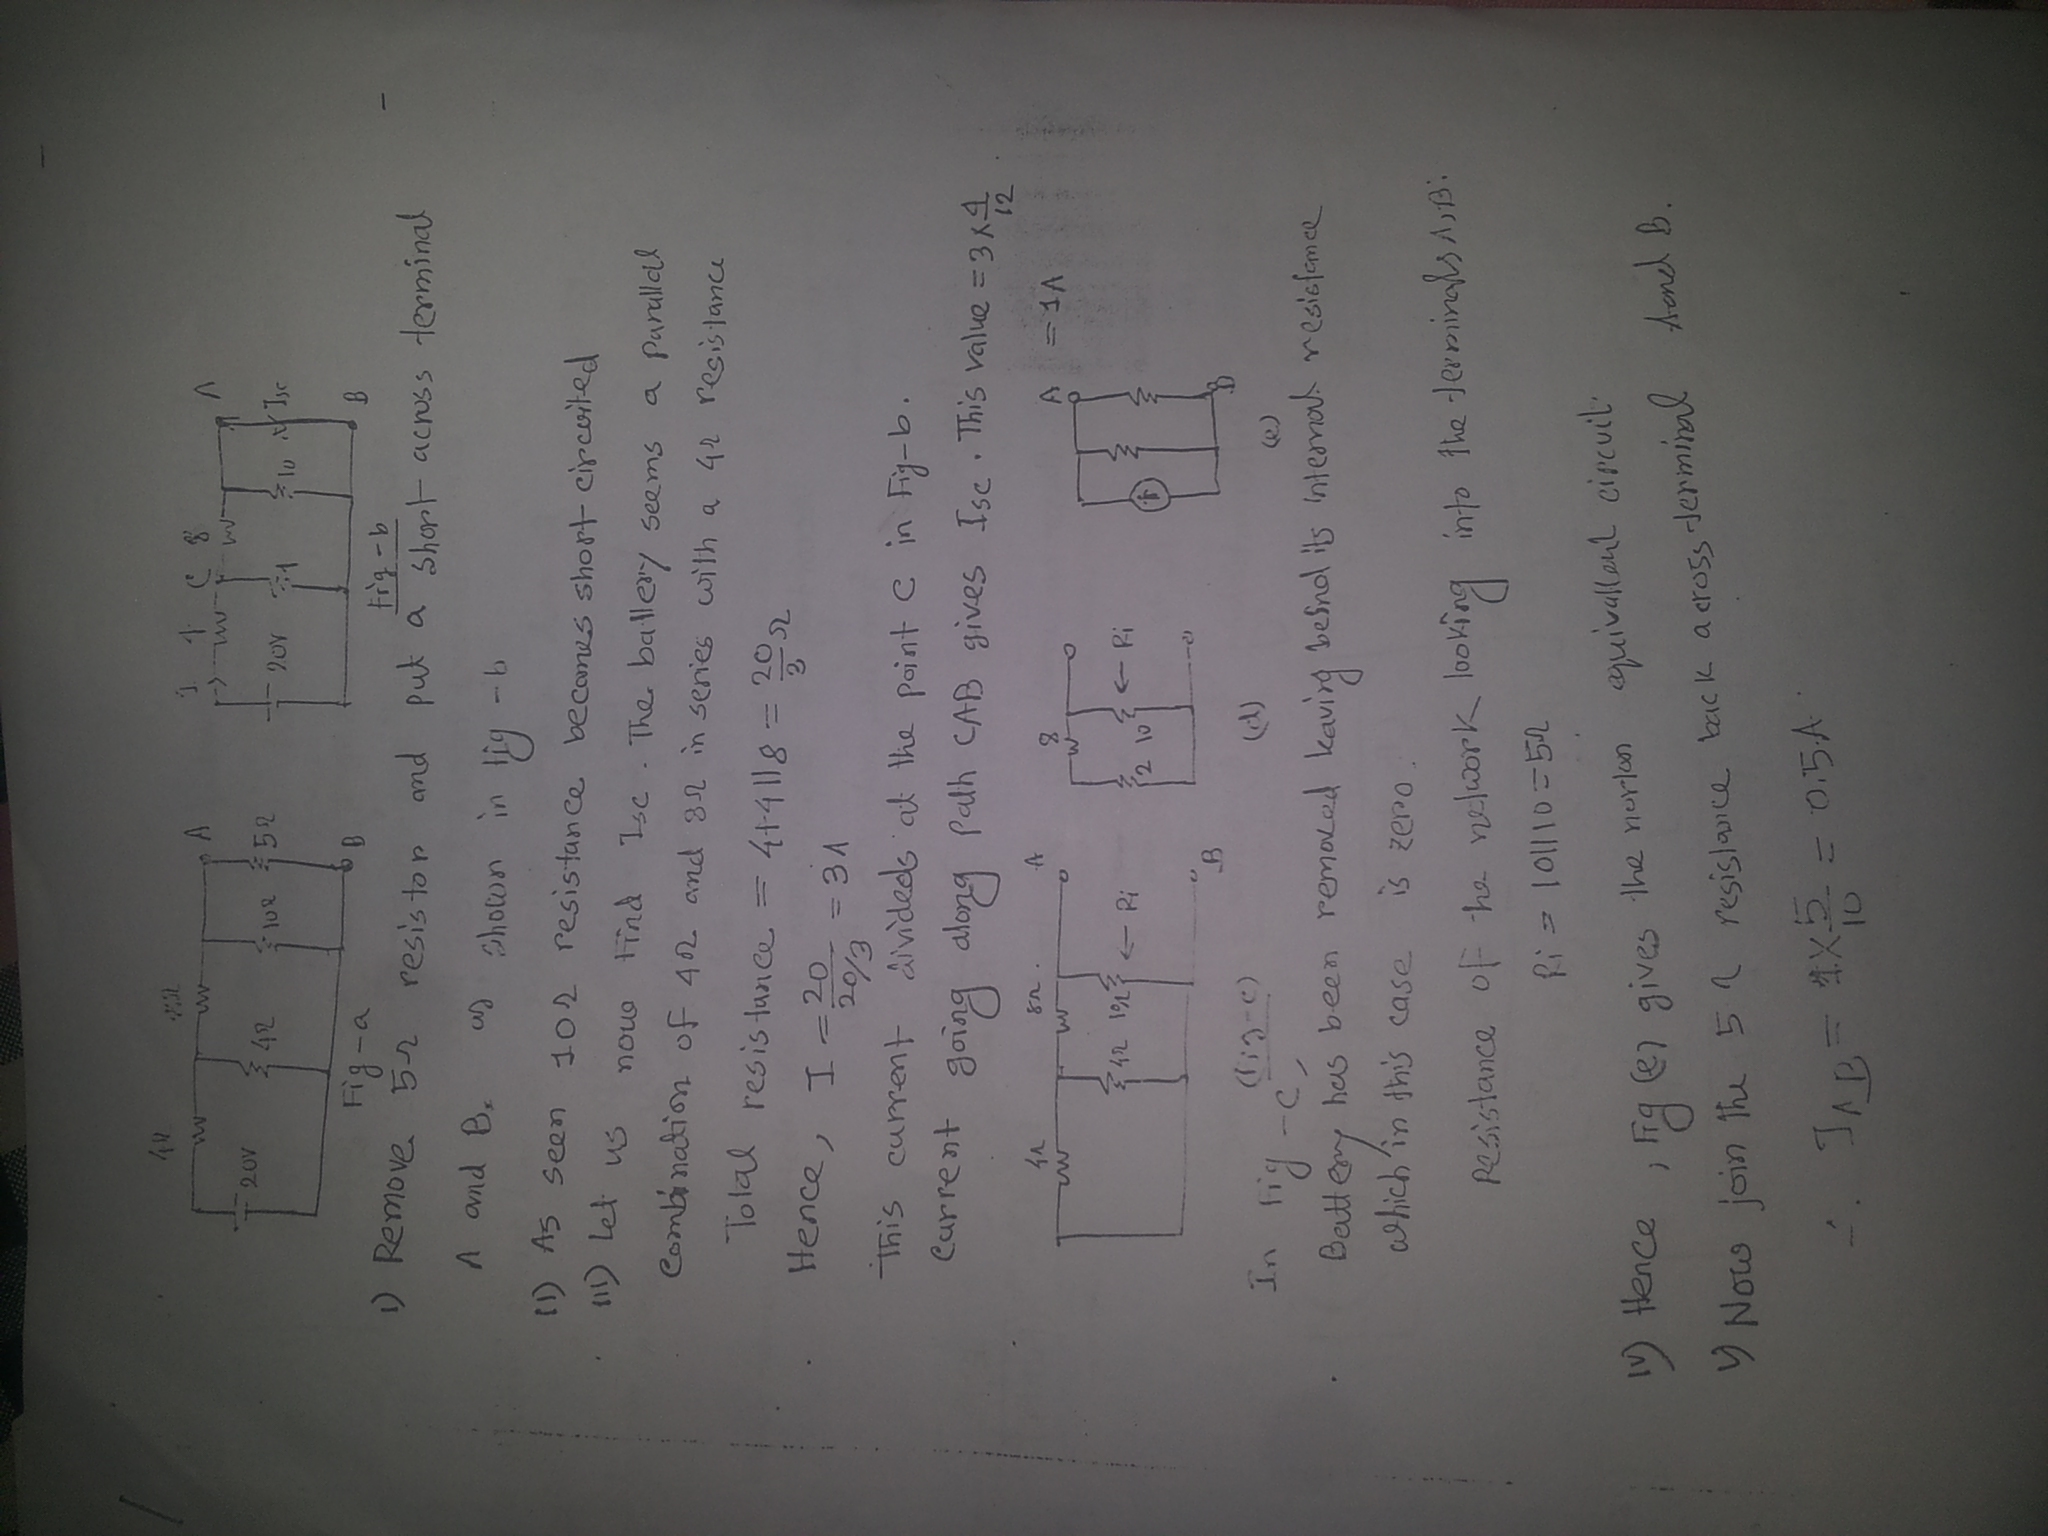 4Ω 8Ω A
20V 4Ω 10Ω 5Ω
B
Fig-a
I 4 C 8 A
20V 4 10 Isc
B
Fig-b
i) Remove 5Ω resistor and put a short across terminal
A and B, as shown in fig-b
ii) As seen 10Ω resistance becomes short circuited
iii) Let us now find Isc. The battery seems a parallel
Combination of 4Ω and 8Ω in series with a 4Ω resistance
Total resistance = 4+4||8 = 20/3 Ω
Hence, I = 20/20/3 = 3A
This current divideds at the point C in Fig-b.
Current going along path CAB gives Isc. This value = 3×4/12
= 1A
4Ω 8Ω A
4Ω 10Ω ← Ri
B
(fig-c)
8
2 10 ← Ri
(d)
A
B
(e)
In fig-c,
Battery has been removed leaving behnd its internal resistance
which in this case is zero.
Resistance of the network looking into the terminals A,B:
Ri = 10||10 = 5Ω
iv) Hence, Fig (e) gives the norton equivallent circuit.
v) Now join the 5Ω resistance back across terminal A and B.
∴ IAB = 1×5/10 = 0.5A